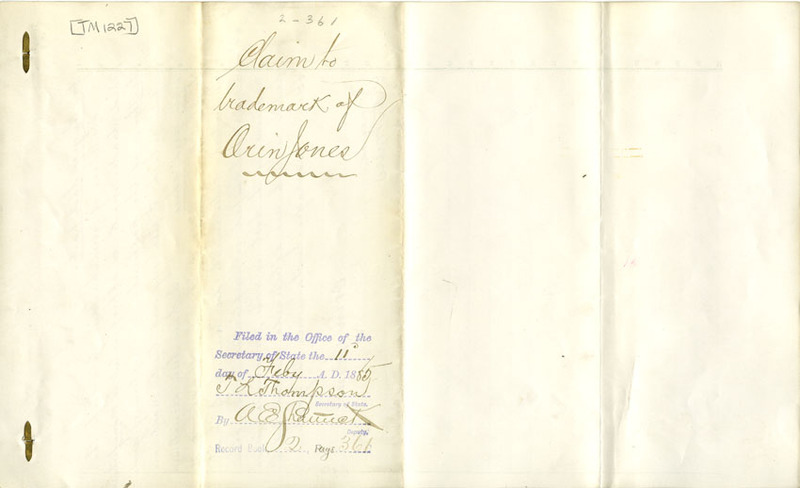 [TM 1227]
2-361
Claim to
trademark of
Orin Jones
Filed in the Office of the
Secretary of State the 11"
day of Feby A. D. 1885
T L Thompson
Secretary of State.
By A E Shattuck
Deputy.
Record Book 2, Page 361